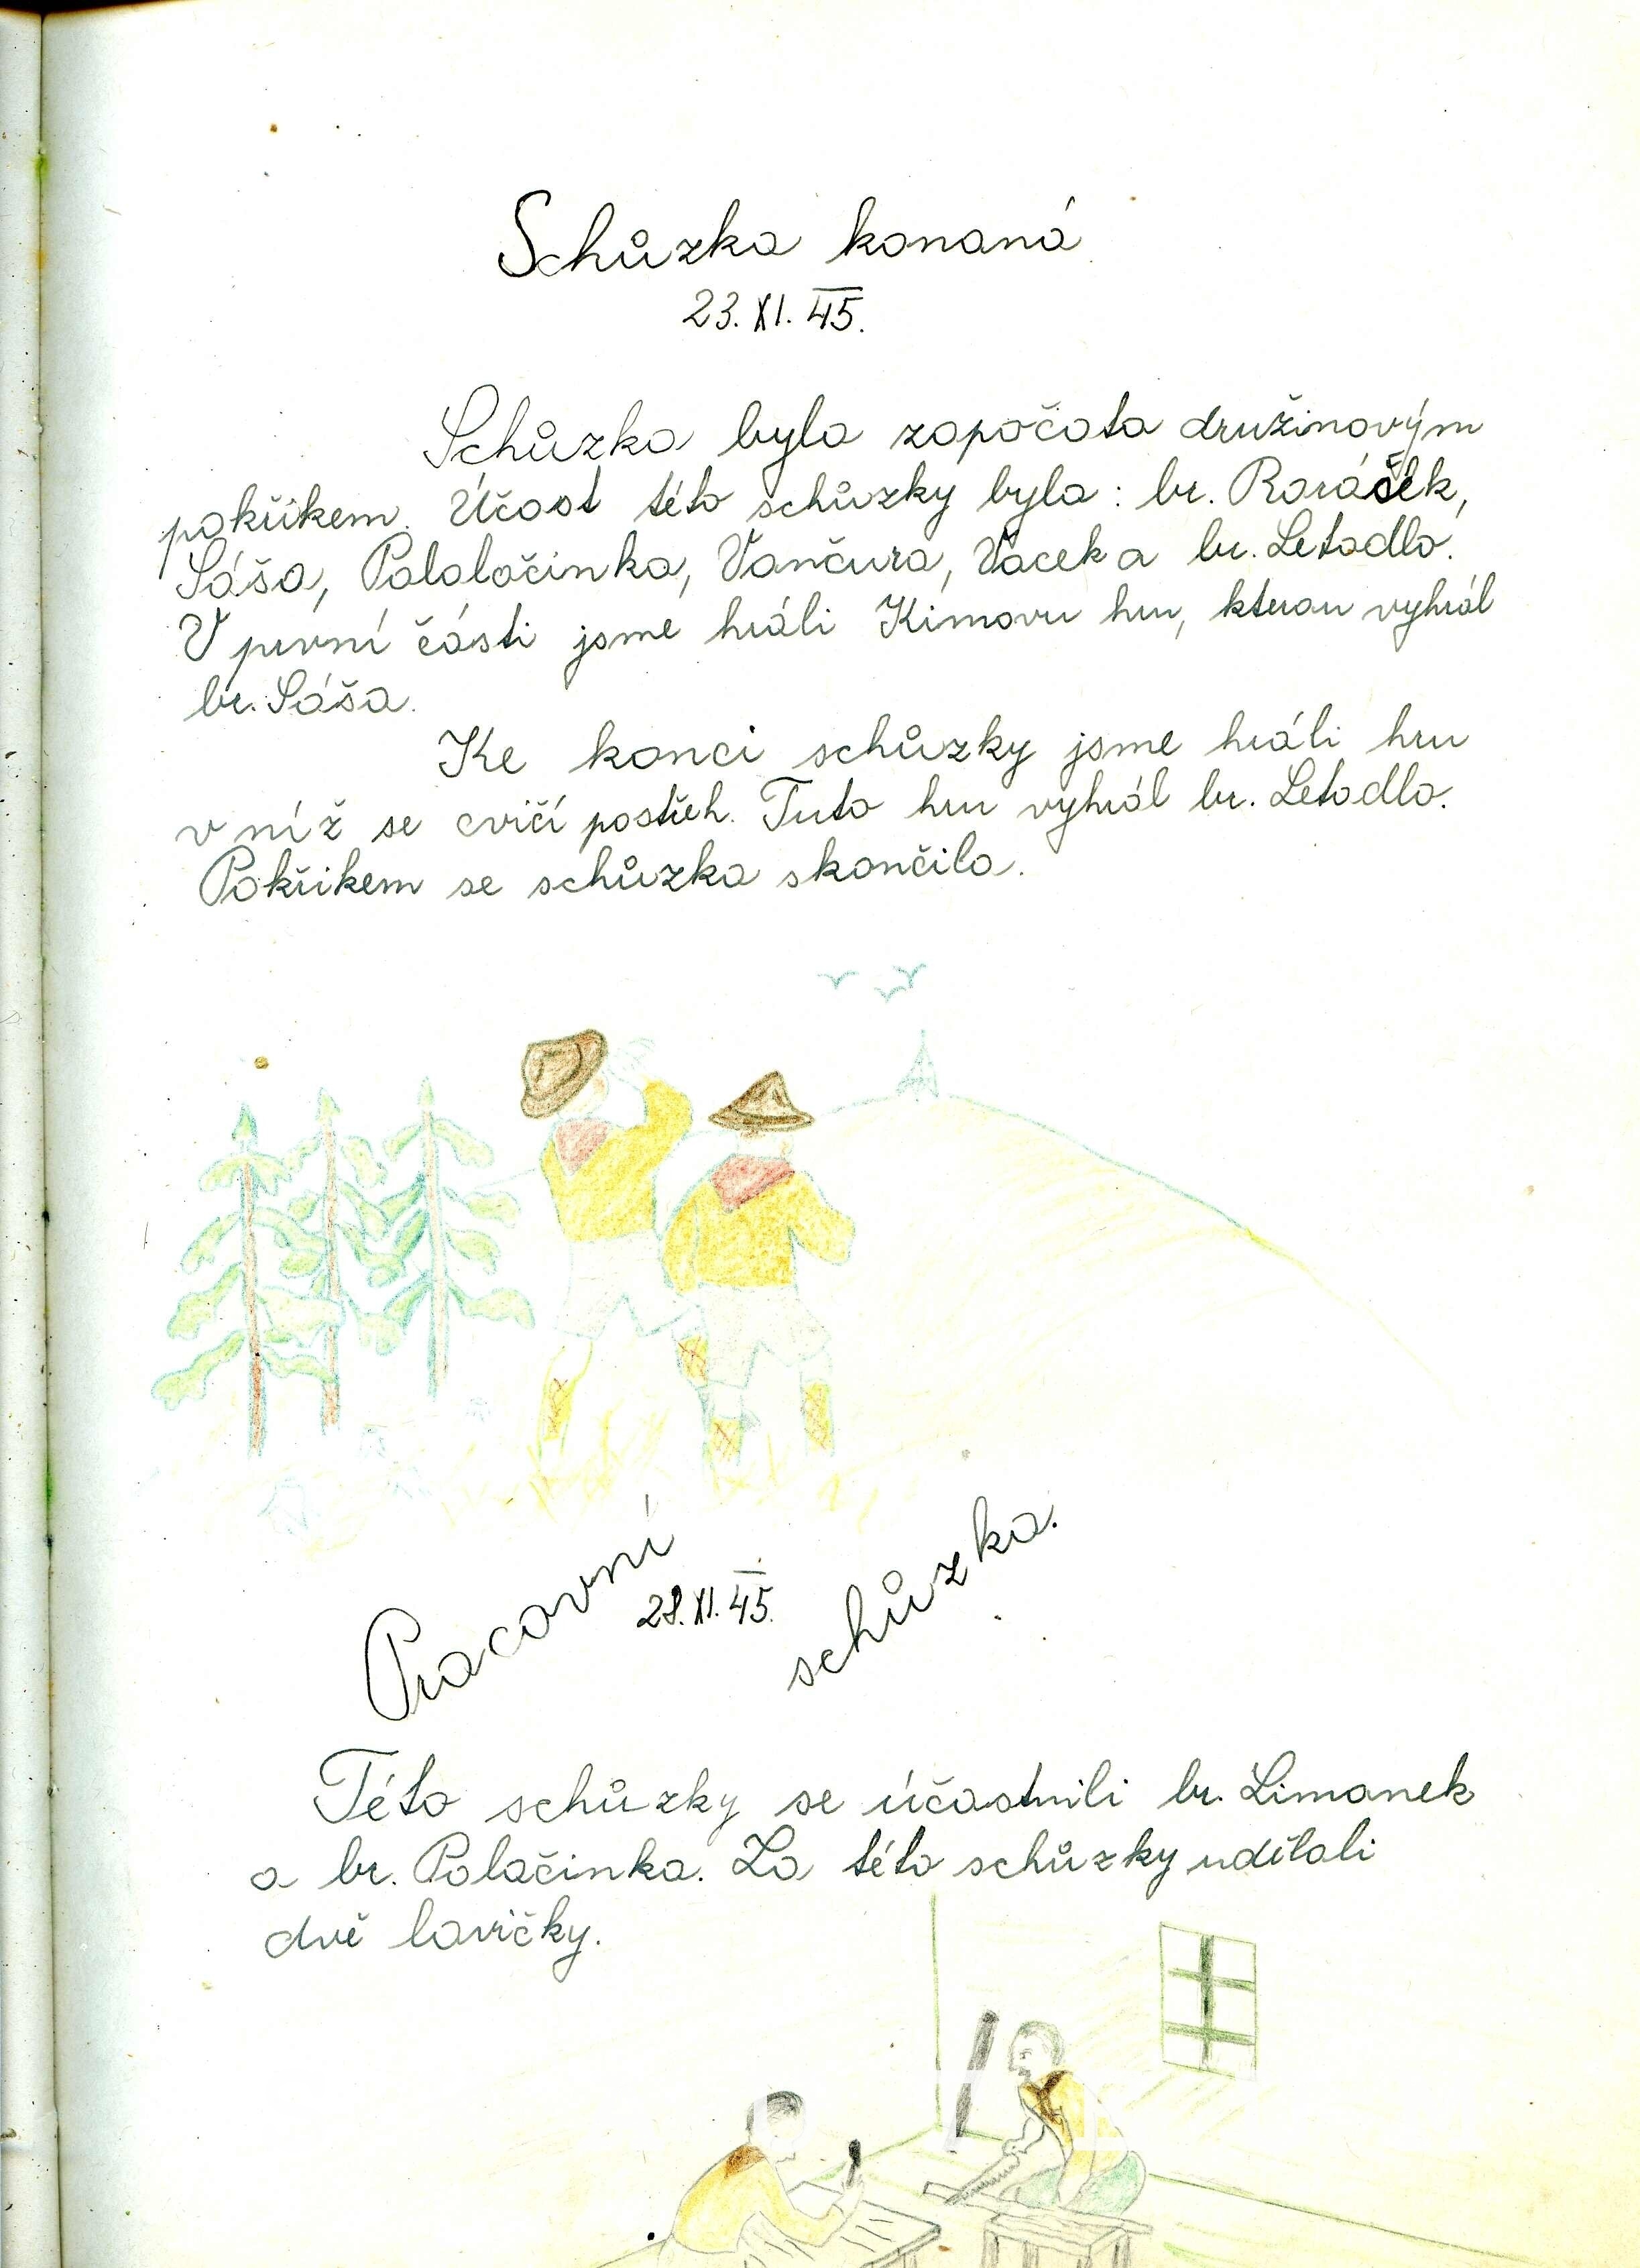 Schůzka konaná
23. XI. 45.
Schůzka byla započata družinovým
pokřikem. Účast této schůzky byla: br. Roráček,
Sáša, Palalačinka, Vančura, Vacek a br. Letadlo.
V první části jsme hráli Kimovu hru, kterou vyhrál
br. Sáša.
Ke konci schůzky jsme hráli hru
v níž se cvičí postřeh. Tuto hru vyhrál br. Letadlo.
Pokřikem se schůzka skončila.
Pracovní schůzka.
28. XI. 45.
Této schůzky se účastnili br. Limanek
a br. Palačinka. Za této schůzky udělali
dvě lavičky.